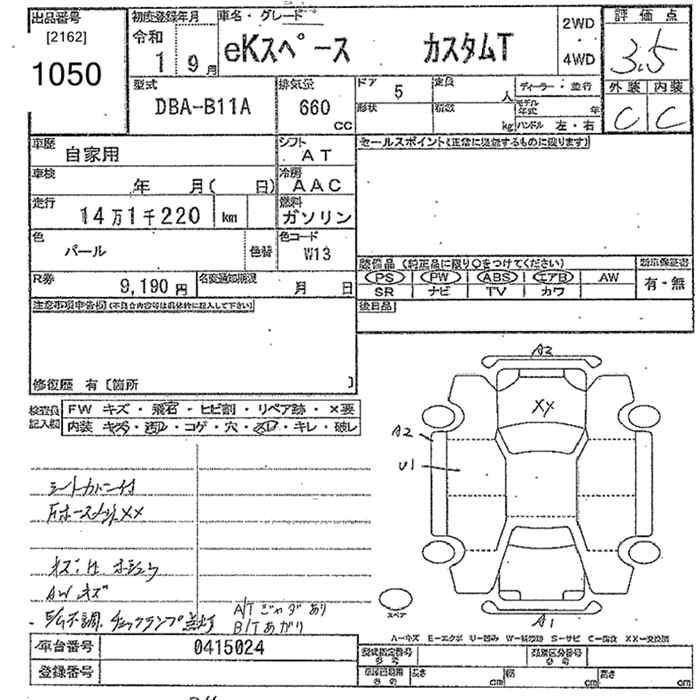 出品番号 初度登録年月 車名・グレード 2WD 評価点
[2162] 令和 eKスペース カスタムT ・ 3.5
1050 1 9月 4WD
型式 排気量 ドア 5 定員 人 ディーラー・並行 外装 内装
DBA-B11A 660 cc 形状 積数 kg モデル年式 年 C C
ハンドル 左・右
車歴 自家用 シフト AT セールスポイント(正常に機能するものに限ります)
車検 年 月( 日) 冷房 AAC
走行 14万1千220 km 燃料 ガソリン
色 パール 色替 色コード W13 装備品 (純正品に限り○をつけてください)
PS PW ABS エアB AW 有・無
R券 9,190円 名変通知期限 月 日 SR ナビ TV カワ
注意事項申告欄(不具合内容等は具体的に記入して下さい) 後日品
修復歴 有〔箇所 〕
検査員 FW キズ・飛石・ヒビ割・リペア跡・×要
記入欄 内装 キズ・汚れ・コゲ・穴・スレ・キレ・破レ
A2
XX
A2
U1
シートカバー付
XX
AW キズ
不調 チェックランプ点灯
A/T ジャダあり
B/T あがり
スペア
A1
A-キズ E-エクボ U-凹み W-補修跡 S-サビ C-腐食 XX-交換済
車台番号 0415024 型式指定番号 類別区分番号
登録番号 長さ cm 幅 cm 高さ cm